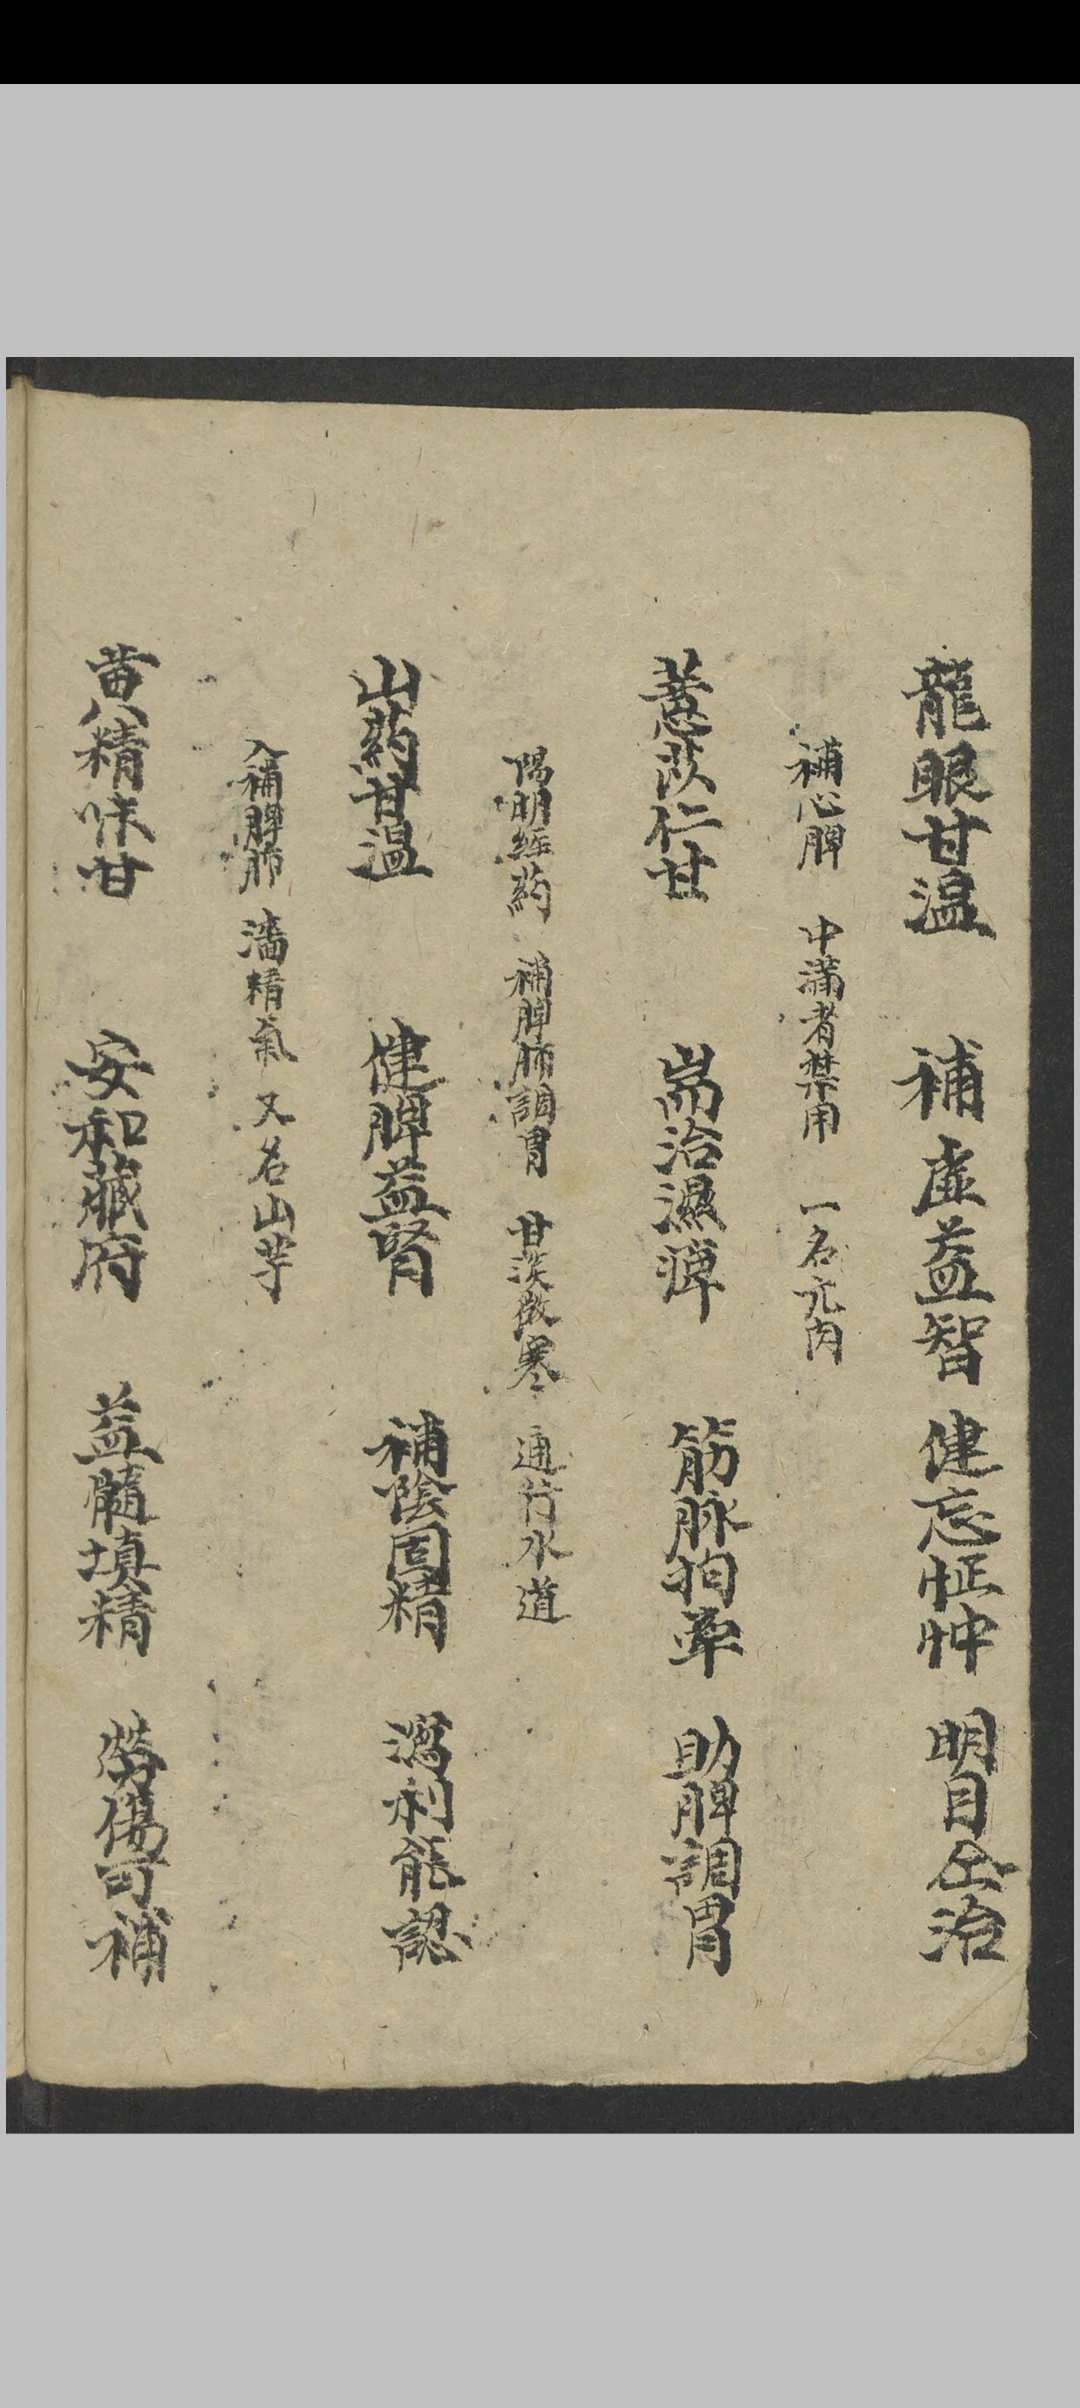 龍眼甘温 補虛益智 健忘怔忡 明目並治
補心脾 中滿者禁用 一名元肉
薏苡仁甘 耑治濕痺 筋脉拘牽 助脾調胃
陽明經药 補脾肺調胃 甘淡微寒 通行水道
山药甘温 健脾益腎 補陰固精 瀉利能認
入補脾肺 濇精氣 又名山芋
黄精味甘 安和藏府 益髓填精 勞傷可補